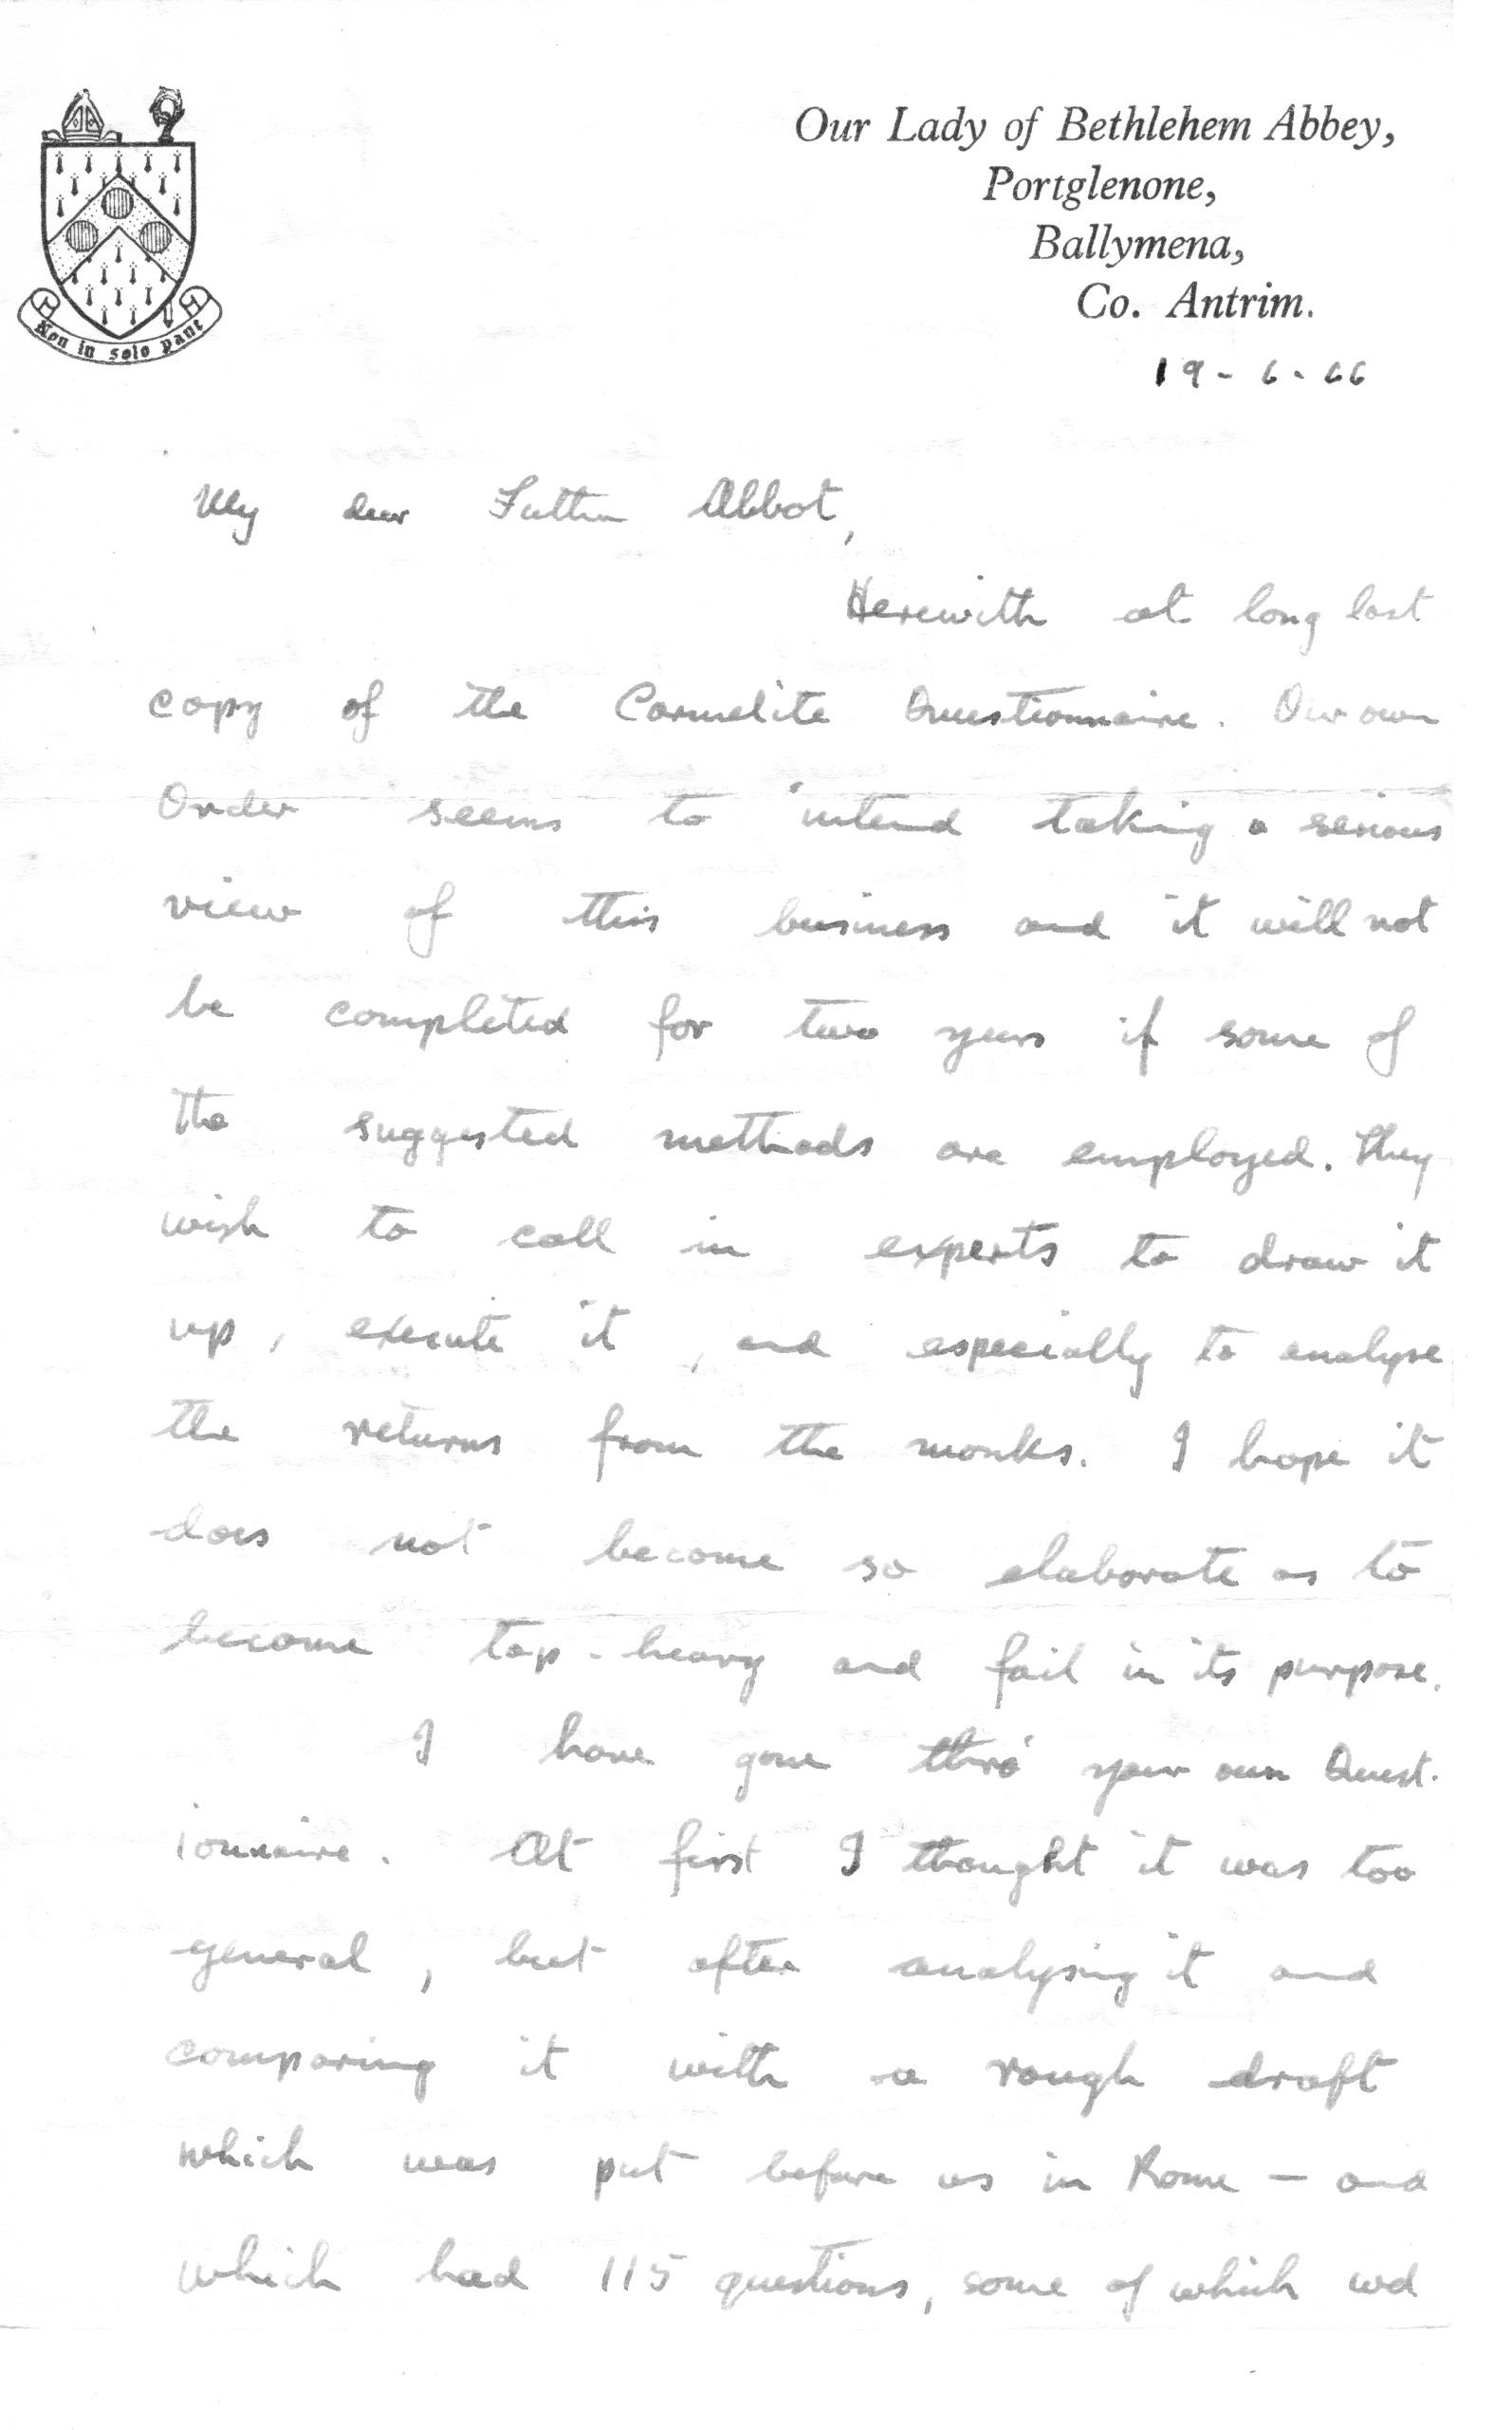 Our Lady of Bethlehem Abbey,
Portglenone,
Ballymena,
Co. Antrim.
Non in solo pane
19-6-66
My dear Father Abbot,
Herewith at long last
copy of the Carmelite Questionnaire. Our own
Order seems to intend taking a serious
view of this business and it will not
be completed for two years if some of
the suggested methods are employed. They
wish to call in experts to draw it
up, execute it, and especially to analyse
the returns from the monks. I hope it
does not become so elaborate as to
become top-heavy and fail in its purpose.
I have gone thro' your own Quest-
ionnaire. At first I thought it was too
general, but after analysing it and
comparing it with a rough draft
which was put before us in Rome — and
which had 115 questions, some of which wd